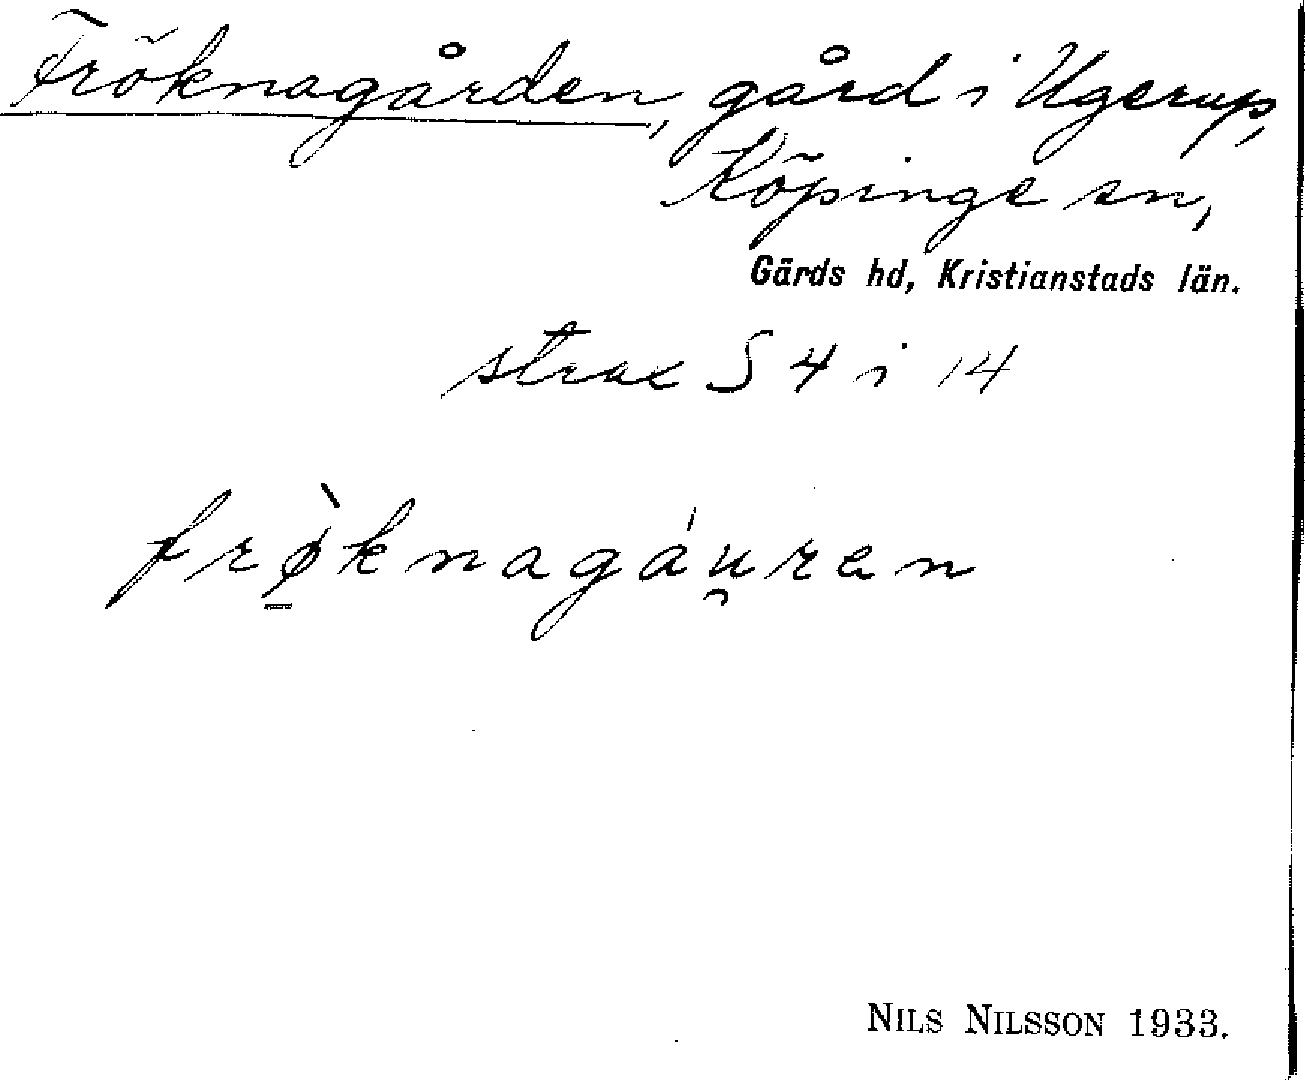 Fröknagården, gård i Ugerup,
Köpinge sn,
Gärds hd, Kristianstads län.
strax S 4 i 14
frø̱̀knagáu̯ren
NILS NILSSON 1933.